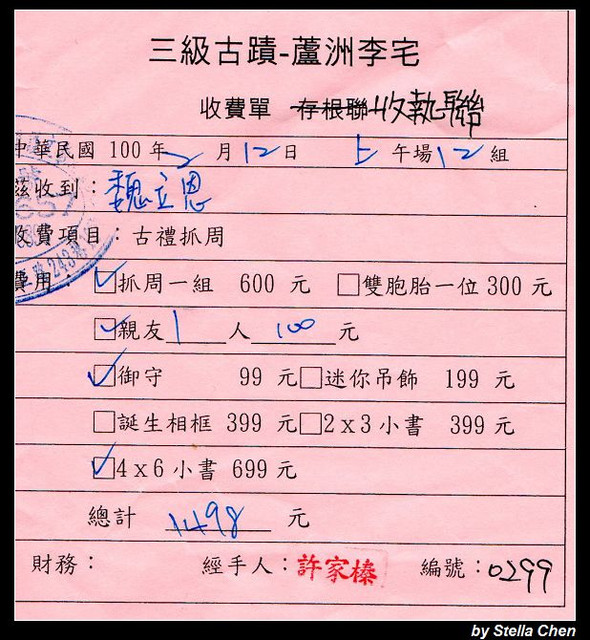 三級古蹟-蘆洲李宅
收費單 存根聯 收執聯
中華民國 100 年 2 月 12 日 上 午場 12 組
茲收到：魏立恩
收費項目：古禮抓周
費用 ☑抓周一組 600 元 □雙胞胎一位 300 元
☑親友 1 人 100 元
☑御守 99 元 □迷你吊飾 199 元
□誕生相框 399 元 □2x3 小書 399 元
☑4x6 小書 699 元
總計 1498 元
財務： 經手人：許家榛 編號：0299
by Stella Chen